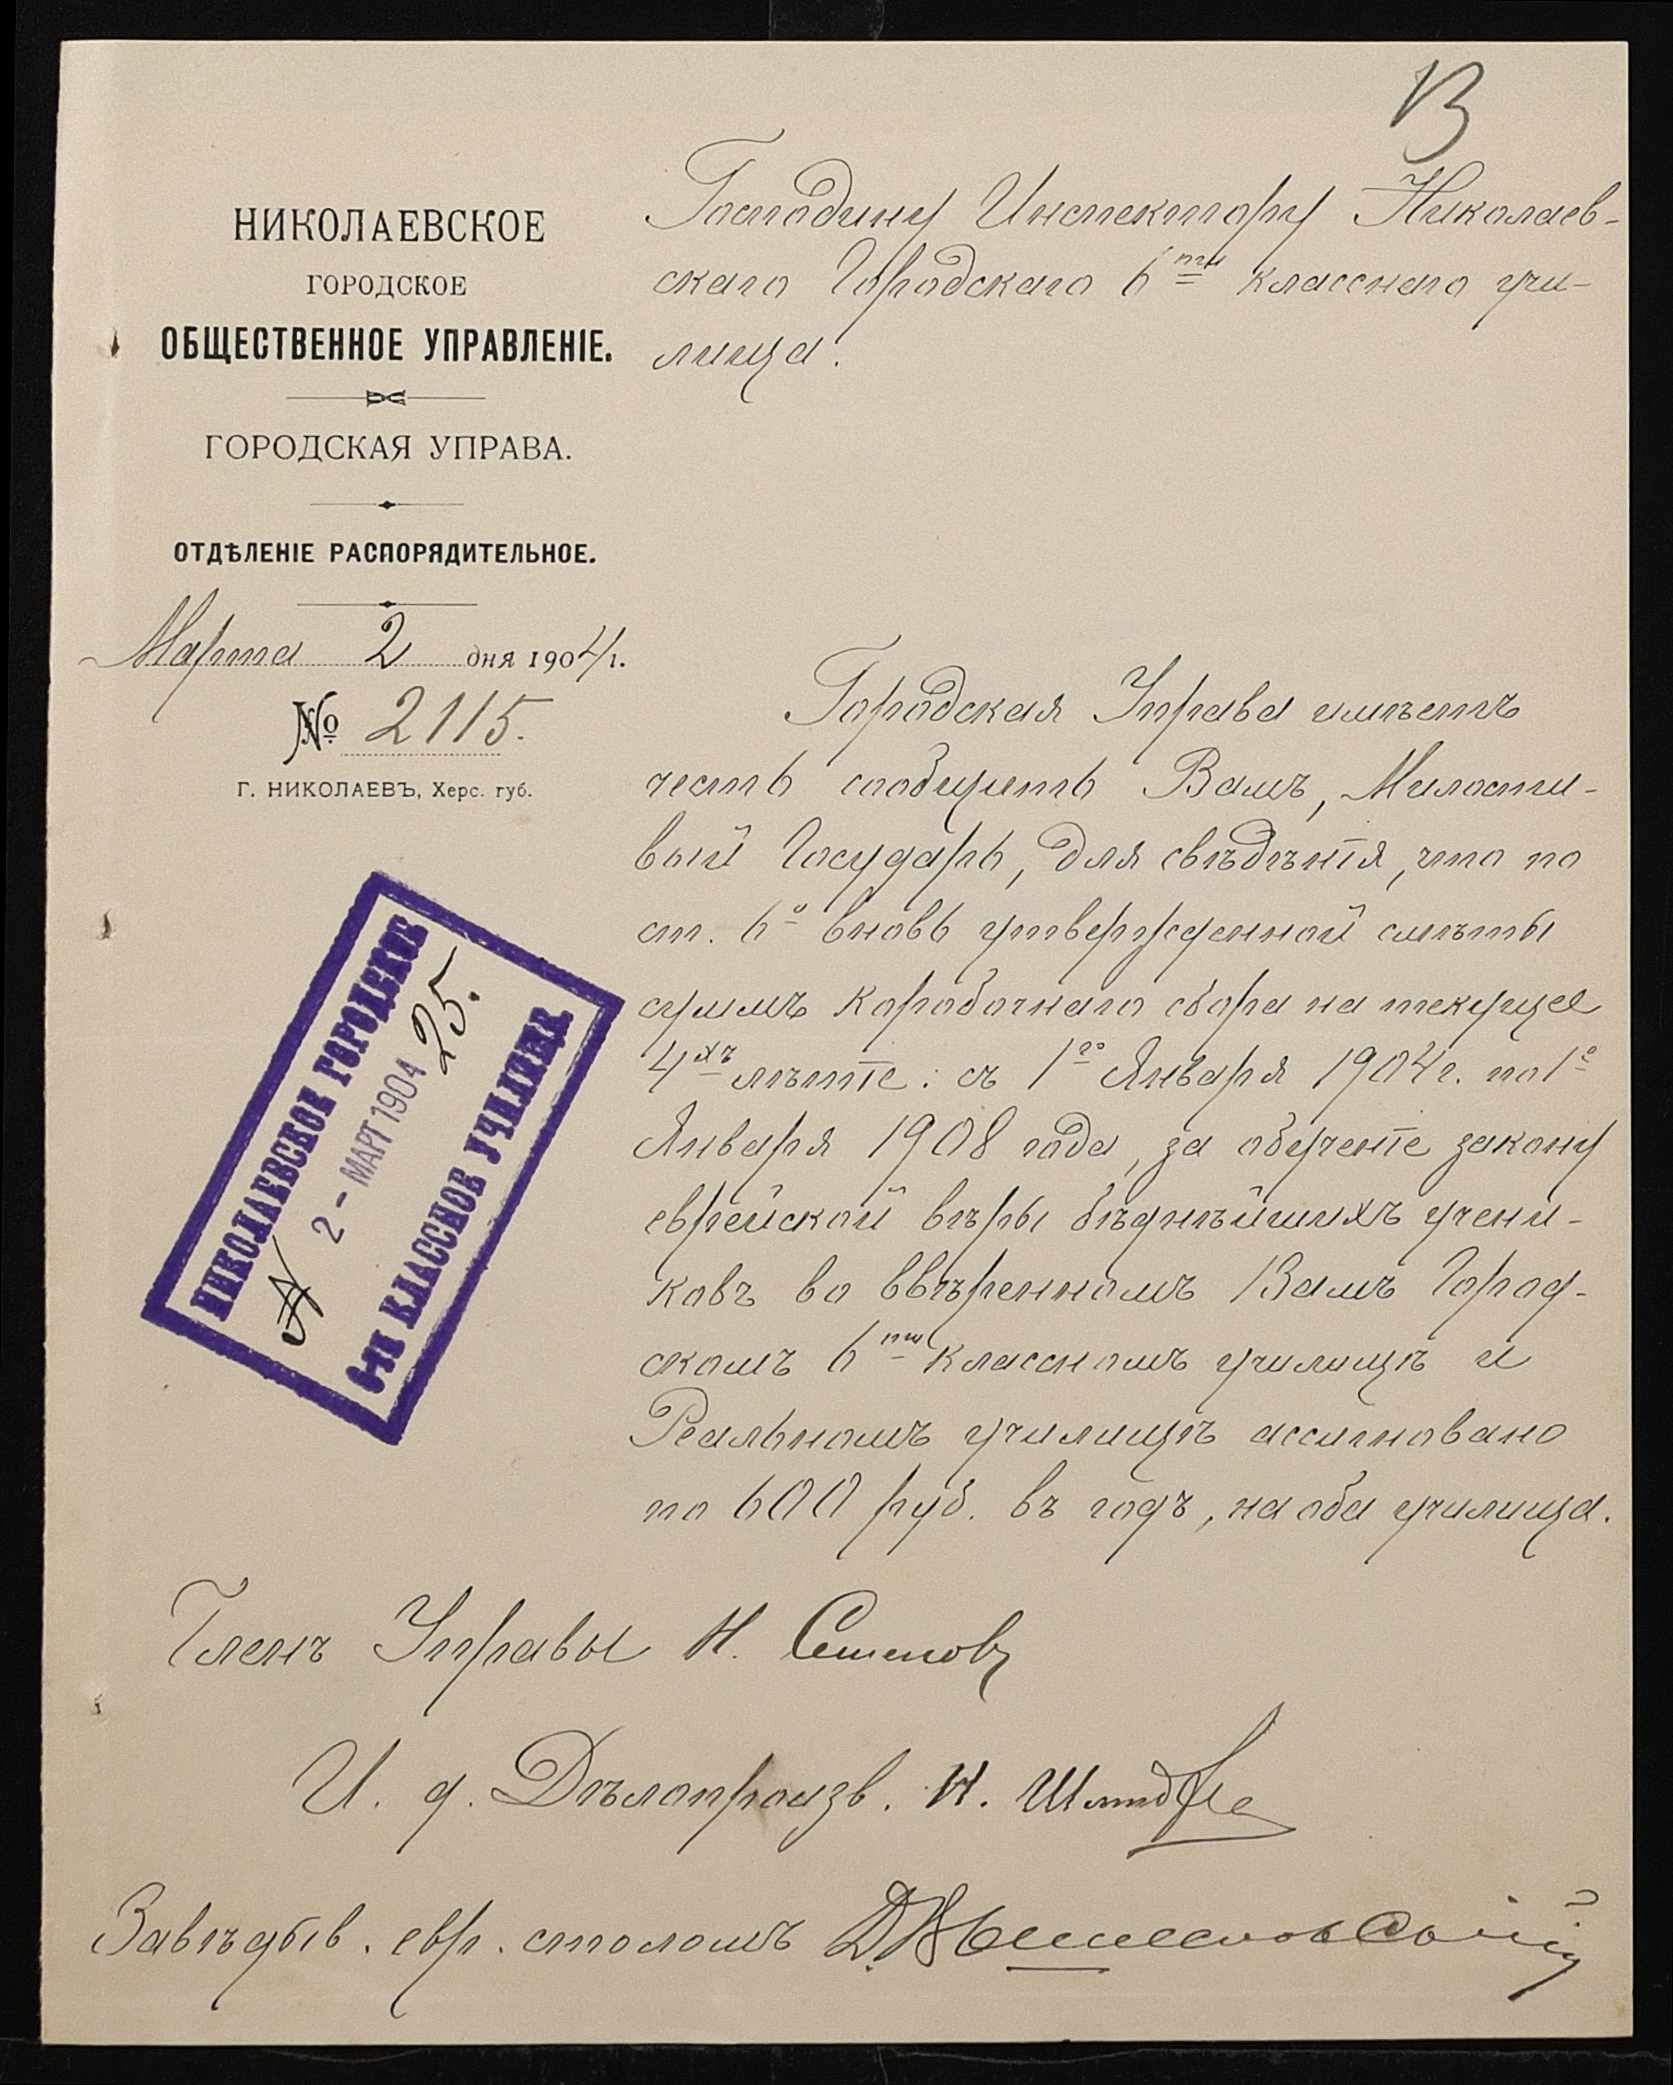 В
НИКОЛАЕВСКОЕ
ГОРОДСКОЕ
ОБЩЕСТВЕННОЕ УПРАВЛЕНІЕ.
ГОРОДСКАЯ УПРАВА.
ОТДѢЛЕНІЕ РАСПОРЯДИТЕЛЬНОЕ.
Марта 2 дня 1904 г.
№ 2115.
Г. НИКОЛАЕВЪ, Херс. губ.
Господину Инспектору Николаев-
скаго Городскаго 6ти класснаго учи-
лища.
Городская Управа имѣетъ
честь сообщить Вамъ, Милости-
вый Государь, для свѣдѣнія, что по
ст. 6й вновь утвержденной смѣты
суммъ коробочнаго сбора на текущее
4хъ лѣтіе: съ 1го Января 1904 г. по 1е
Января 1908 года, за обученіе закону
еврейской вѣры бѣднѣйшихъ учени-
ковъ во ввѣренномъ Вамъ Город-
скомъ 6ти классномъ училищѣ и
Реальномъ училищѣ ассигновано
по 600 руб. въ годъ, на оба училища.
НИКОЛАЕВСКОЕ ГОРОДСКОЕ
2 - МАРТ 1904
25.
6-ТИ КЛАССНОЕ УЧИЛИЩЕ
Членъ Управы Н.
И. д. Дѣлопроизв. И.
Завѣдыв. евр. столомъ